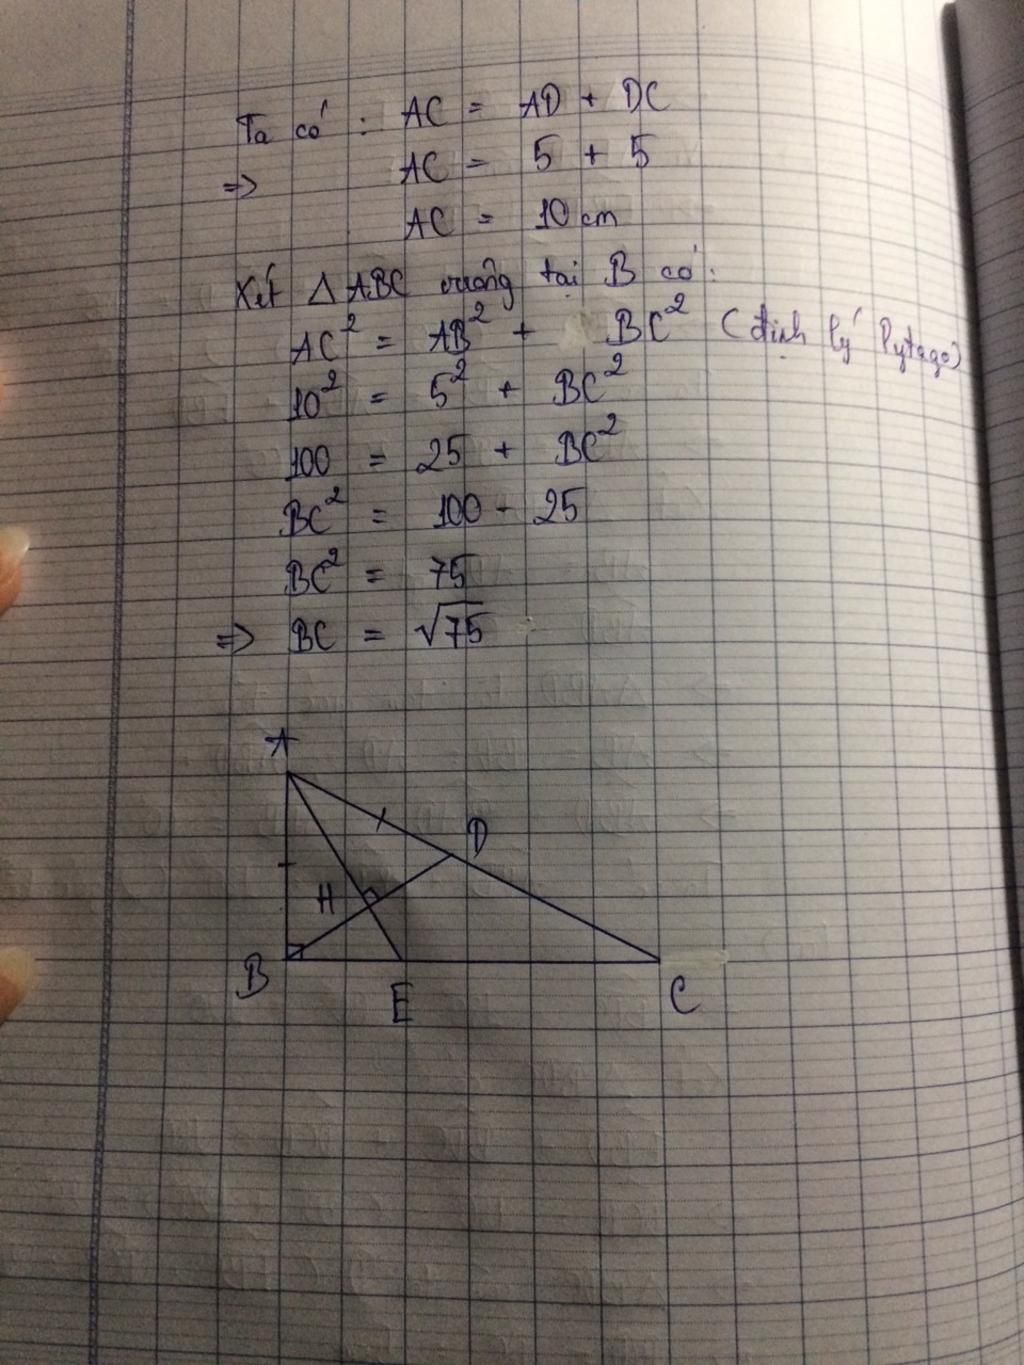 Ta có : AC = AD + DC
=> AC = 5 + 5
AC = 10 cm
Xét Δ ABC vuông tại B có :
AC² = AB² + BC² (định lý Pytago)
10² = 5² + BC²
100 = 25 + BC²
BC² = 100 - 25
BC² = 75
=> BC = √75
A
D
H
B
E
C